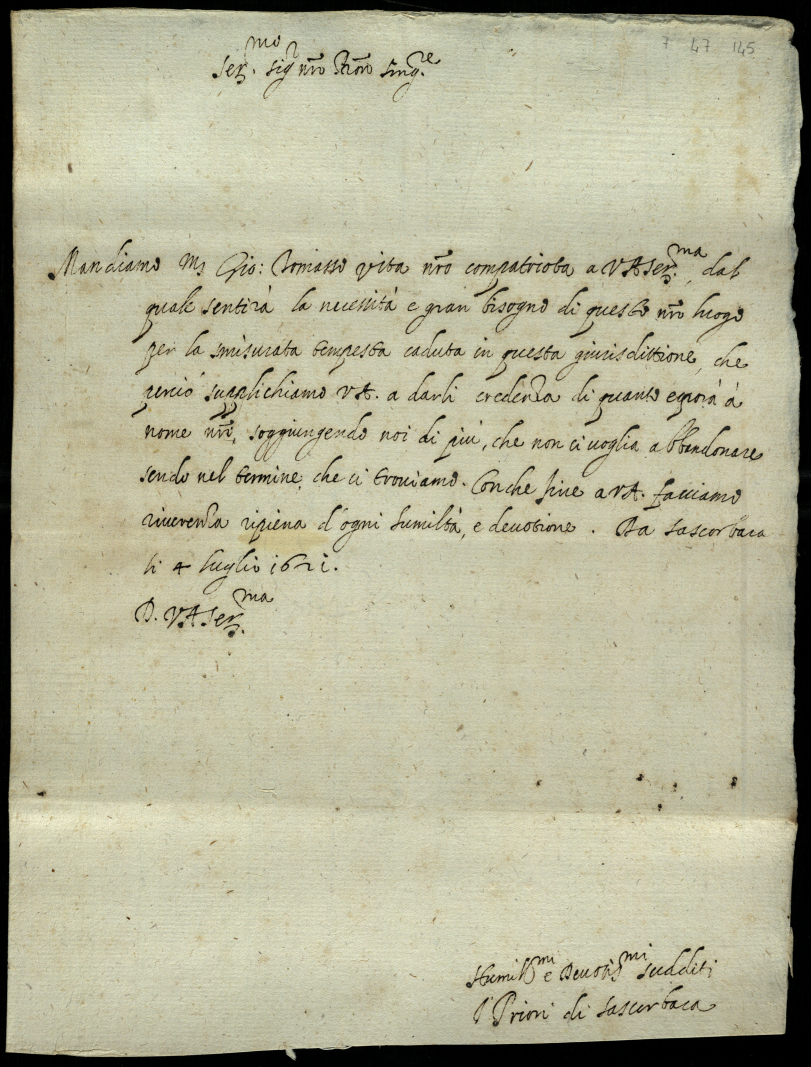 7 47 145
Ser.mo sigr nro Pron singre
Mandiamo Ms Gio: Tomasso Vita nro compatriota a VA Ser.ma, dal
quale sentirà la necessità e gran bisogno di questo nro luogo
per la smisurata tempesta caduta in questa giurisdittione, che
perciò supplichiamo VA. a darli credenza di quanto esporà à
nome nro, soggiungendo noi di più, che non ci voglia abbandonare
sendo nel termine, che ci troviamo. Con che fine a VA. facciamo
riverenza ripiena d'ogni humiltà, e devotione. Da Sascorbaro
li 4 luglio 1621.
D. VA Ser.ma
Humilmi e Devotmi sudditi
I Priori di Sascorbaro